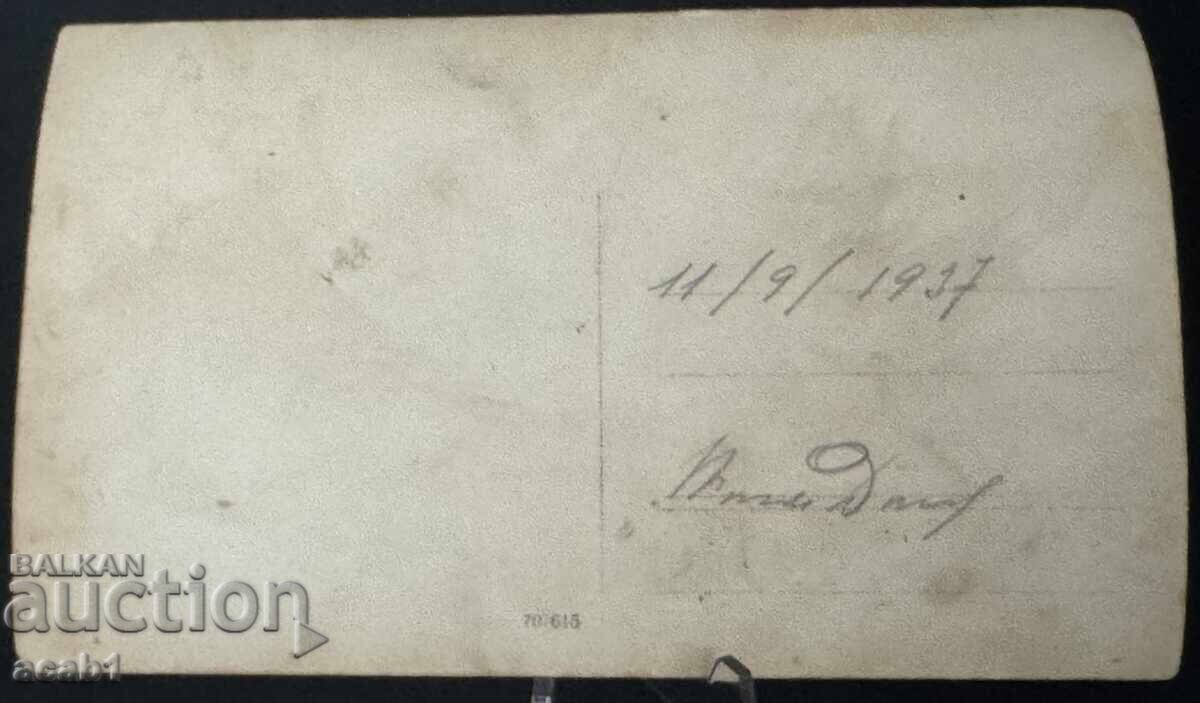 11/9/1937
70 615
BALKAN
auction
acab1